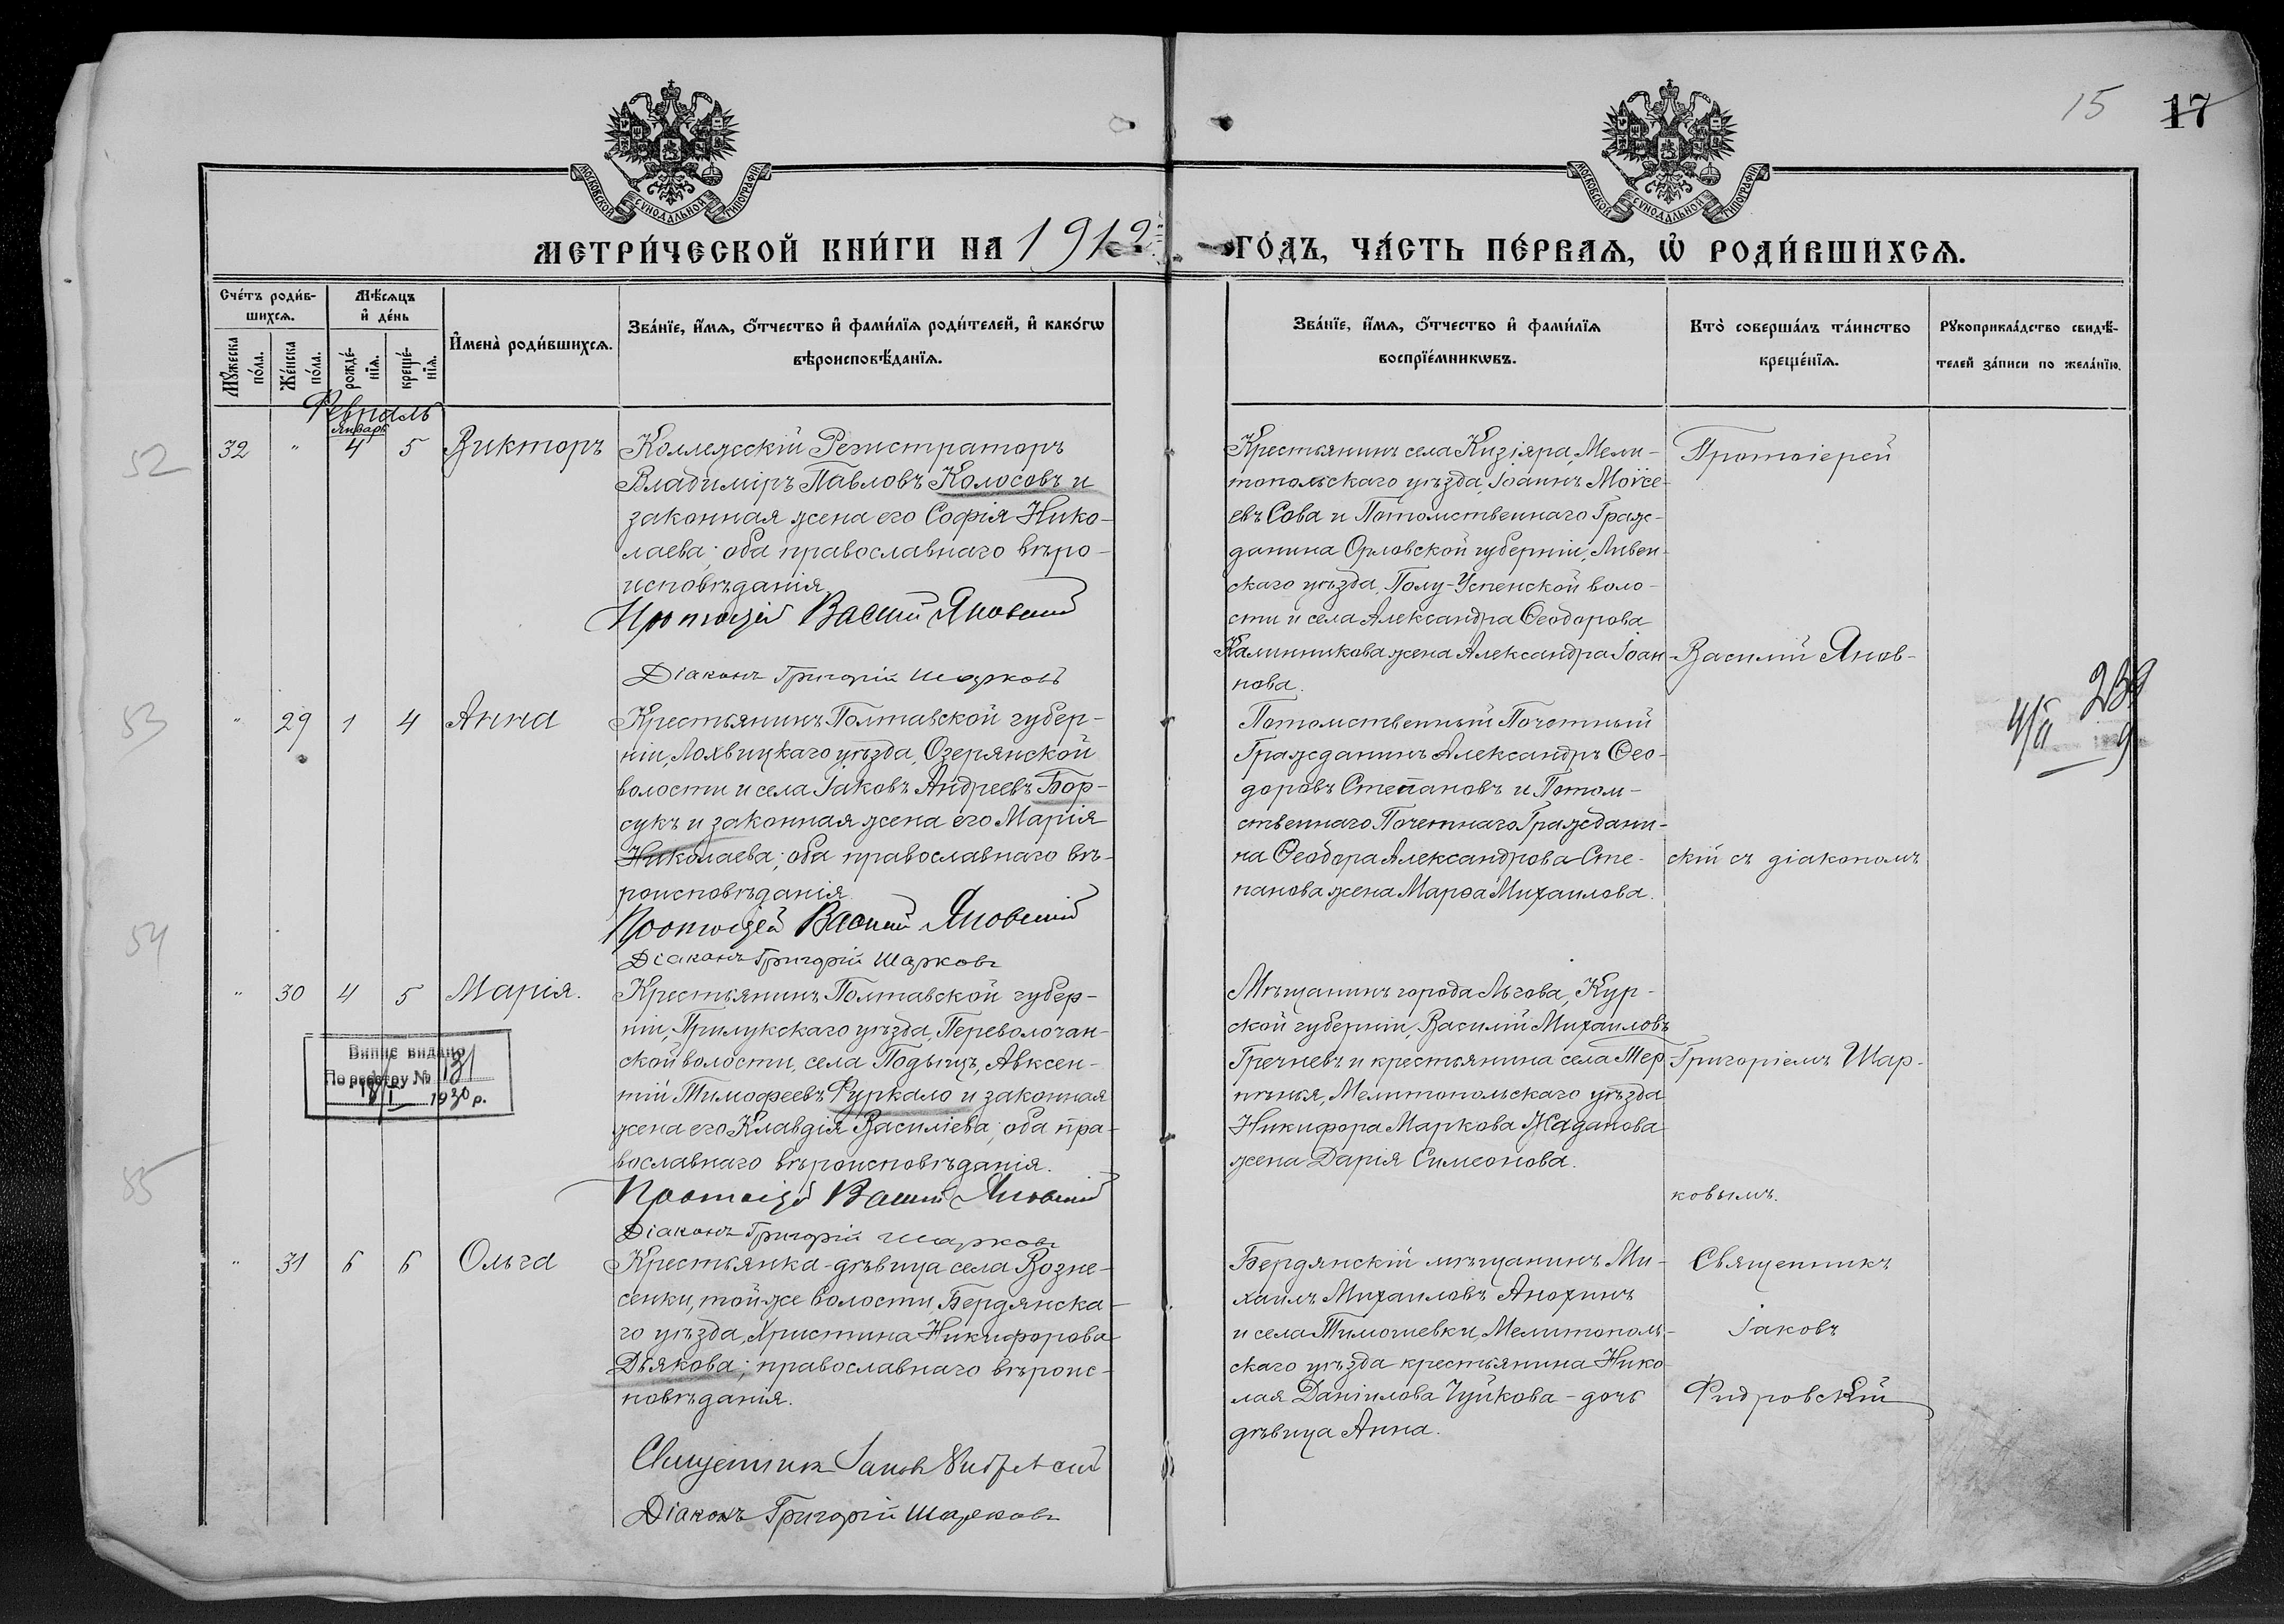 15 17
МОСКОВСКОЙ СѴНОДАЛЬНОЙ ТИПОГРАФІИ
МОСКОВСКОЙ СѴНОДАЛЬНОЙ ТИПОГРАФІИ
МЕТРИ́ЧЕСКОЙ КНИ́ГИ НА 1912
ГО́ДЪ, ЧА́СТЬ ПЕ́РВАѦ, Ѡ РОДИ́ВШИХСѦ.
Сче́тъ роди́в-
шихсѧ.
Мꙋ́жеска по́ла.
Же́нска по́ла.
Мѣ́сѧцъ
и де́нь
рожде́-
нїѧ.
креще́-
нїѧ.
Имена̀ роди́вшихсѧ.
Зва́нїе, и́мѧ, о́тчество и фами́лїѧ роди́телей, и како́гѡ
вѣроисповѣ́данїѧ.
Зва́нїе, и́мѧ, о́тчество и фами́лїѧ
воспрїе́мникѡвъ.
Кто̀ соверша́лъ та́инство
креще́нїѧ.
Рꙋкоприкла́дство свидѣ́-
телей за́писи по жела́нїю.
Февраль
52
32 " Январь 4 5 Викторъ
Коллежскій Регистраторъ
Владиміръ Павловъ Колосовъ и
законная жена его Софія Нико-
лаева; оба православнаго вѣро-
исповѣданія
Протоіерей Василій Яновскій
Діаконъ Григорій Шарковъ
Крестьянинъ села Кизіяра, Мели-
топольскаго уѣзда, Іоаннъ Моѵсе-
евъ Сова и Потомственнаго Граж-
данина Орловской губерніи, Ливен-
скаго уѣзда, Полу-Успенской воло-
сти и села Александра Ѳеодорова
Калинникова жена Александра Іоан-
нова.
Протоіерей
Василій Янов-
53
" 29 1 4 Анна
Крестьянинъ Полтавской губер-
ніи, Лохвицкаго уѣзда, Озерянской
волости и села Іаковъ Андреевъ Бор-
сукъ и законная жена его Марія
Николаева; оба православнаго вѣ-
роисповѣданія
Протоіерей Василій Яновскій
Діаконъ Григорій Шарковъ
Потомственный Почетный
Гражданинъ Александръ Ѳео-
доровъ Степановъ и Потом-
ственнаго Почетнаго Граждани-
на Ѳеодора Александрова Сте-
панова жена Марѳа Михаилова.
скій съ діакономъ
239
54
" 30 4 5 Марія.
Крестьянинъ Полтавской губер-
ніи, Прилукскаго уѣзда, Переволочан-
ской волости, села Подыщъ, Авксен-
тій Тимофеевъ Фуркало и законная
жена его Клавдія Василіева; оба пра-
вославнаго вѣроисповѣданія.
Протоіерей Василій Яновскій
Діаконъ Григорій Шарковъ
Мѣщанинъ города Льгова, Кур-
ской губерніи, Василій Михаиловъ
Гречневъ и крестьянина села Тер-
пѣнья, Мелитопольскаго уѣзда
Никифора Маркова Жаданова
жена Дарія Симеонова.
Григоріемъ Шар-
ковымъ.
Випис видано
По реєстру № 131
18/I 1930 р.
55
" 31 6 6 Ольга
Крестьянка-дѣвица села Возне-
сенки, той же волости, Бердянска-
го уѣзда, Христина Никифорова
Дьякова; православнаго вѣроис-
повѣданія.
Священникъ Іаковъ
Діаконъ Григорій Шарковъ
Бердянскій мѣщанинъ Ми-
хаилъ Михаиловъ Анохинъ
и села Тимошевки, Мелитополь-
скаго уѣзда крестьянина Нико-
лая Даніилова Чуйкова - дочь
дѣвица Анна.
Священникъ
Іаковъ
Фидровскій